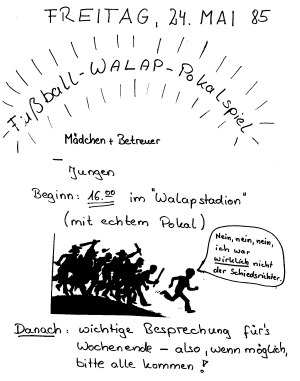 FREITAG, 24. MAI 85
Fußball-WALAP-Pokalspiel
Mädchen + Betreuer
–
Jungen
Beginn: 16.00 im "Walapstadion"
(mit echtem Pokal)
Nein, nein, nein,
ich war
wirklich nicht
der Schiedsrichter
Danach: wichtige Besprechung für's
Wochenende – also, wenn möglich,
bitte alle kommen!